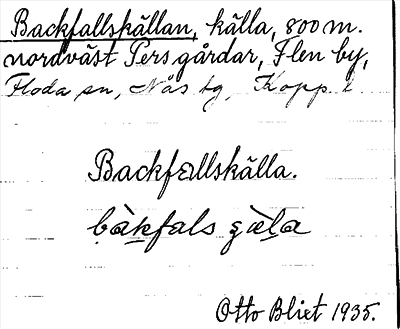 Backfallskällan, källa, 800 m.
nordväst Pers gårdar, Flen by,
Floda sn, Nås tg, Kopp. l.
Backfallskälla.
bàkfals ʂæ̀la
Otto Blixt 1935.